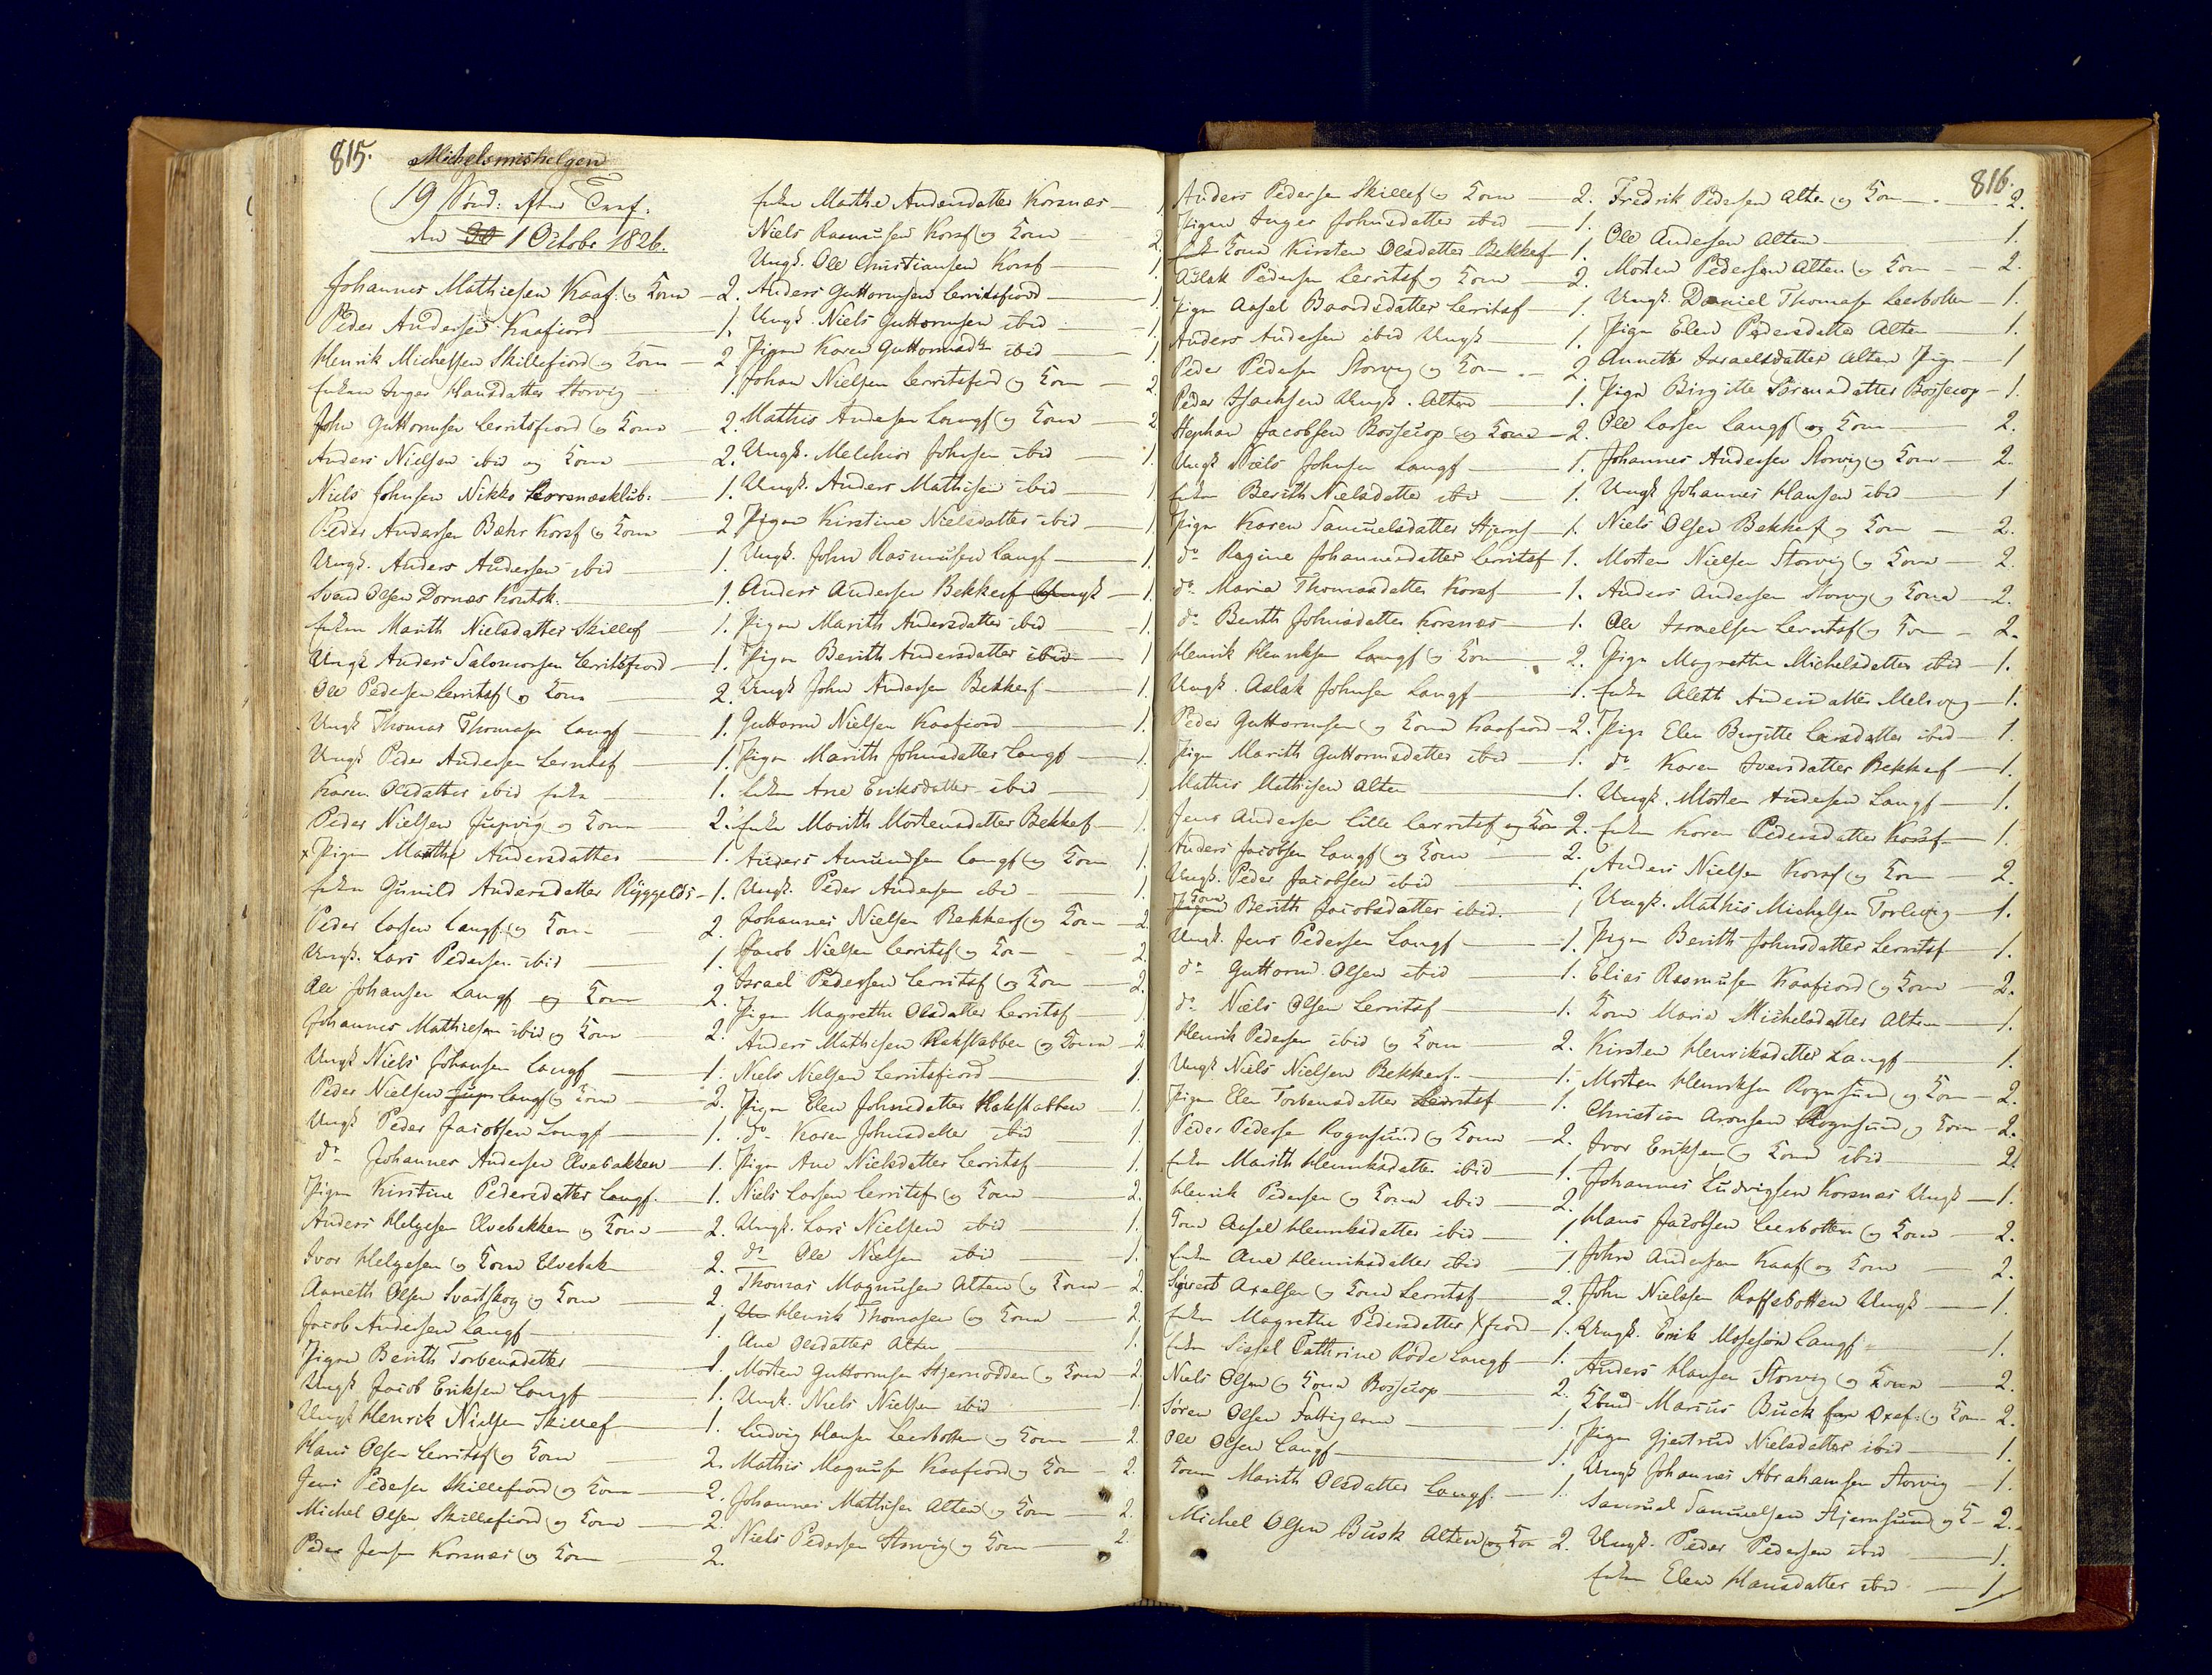 815.
Michelsmishelgen
19 Sönd: efter Trinf.
den 1 Octobr 1826.
Johannes Mathiesen Kaaf. og Kone — 2.
Peder Andersen Kaafiord — 1.
Henrik Michelsen Skillefiord og Kone — 2
Enken Inger Hansdatter Storvig — 1.
John Guttormsen Lerritsfiord og Kone — 2.
Anders Nielsen ibid og Kone — 2.
Niels Johnsen Nikko Korsnæsklub: — 1.
Peder Andersen Bæhr Korsf og Kone — 2
Ungk. Anders Andersen ibid — 1.
Svend Olsen Dornæs Kontok. — 1.
Enken Marith Nielsdatter Skillef — 1.
Ungk Anders Salomonsen Lerritsfiord — 1.
Ole Pedersen Lerritsf og Kone — 2.
Ungk Thomas Thomasen Langf — 1.
Ungk Peder Andersen Lerritsf — 1.
Karen Olsdatter ibid Enke — 1.
Peder Nielsen Jupvig og Kone — 2.
x Pigen Marthe Andersdatter — 1.
Enken Gunild Andersdatter Ryggelds — 1.
Peder Larsen Langf. og Kone — 2.
Ungk. Lars Pedersen ibid — 1.
Ole Johansen Langf og Kone — 2.
Johannes Mathiesen ibid og Kone — 2.
Ungk Niels Johansen Langf — 1.
Peder Nielsen Langf og Kone — 2.
Ungk Peder Jacobsen Langf — 1.
do Johannes Andersen Elvebakken — 1.
Pigen Kirstine Pedersdatter Langf. — 1.
Anders Helgesen Elvebakken og Kone — 2.
Ivor Helgesen og Kone Elvebak — 2.
Anneth Olsen Svartskog og Kone — 2.
Jacob Andersen Langf — 1.
Pigen Berith Torbensdatter — 1.
Ungk Jacob Eriksen Langf — 1.
Ungk Henrik Nielsen Skillef — 1.
Hans Olsen Lerritsf og Kone — 2.
Jens Pedersen Skillefiord og Kone — 2.
Michel Olsen Skillefiord og Kone — 2.
Peder Jensen Korsnæs og Kone — 2.
Enken Marthe Andersdatter Korsnæs — 1
Niels Rasmusen Korsf og Kone — 2.
Ungk. Ole Christiansen Korsf — 1.
Anders Guttormsen Lerritsfiord — 1.
Ungk. Niels Guttormsen ibid — 1.
Pigen Karen Guttormsdtr ibid — 1.
Johan Nielsen Lerritsfiord og Kone — 2.
Mathis Andersen Langf og Kone — 2
Ungk. Melchior Johnsen ibid — 1.
Ungk. Anders Mathisen ibid — 1
Pigen Kirstine Nielsdatter ibid — 1.
Ungk. John Rasmusen Langf — 1.
Anders Andersen Bekkerf Ungk — 1.
Pigen Marith Andersdatter ibid — 1.
Pigen Berith Andersdatter ibid — 1
Ungk John Andersen Bekkerf — 1.
Guttorm Nielsen Kaafiord — 1.
Pigen Marith Johnsdatter Langf — 1.
Enken Ane Eriksdatter ibid — 1
Enken Marith Mortensdatter Bekkef — 1.
Anders Amundsen Langf og Kone
Ungk. Peder Andersen ibid — 1
Johannes Nielsen Bekkerf og Kone — 2.
Jacob Nielsen Lerritsf og Kon — 2.
Israel Pedersen Lerritsf og Kone — 2.
Pigen Magrethe Olsdatter Lerritsf — 1
Anders Mathisen Hakstabben og Kone — 2
Niels Nielsen Lerritsfiord — 1.
Pigen Elen Johnsdatter Hakstabben — 1.
do Karen Johnsdatter ibid — 1
Pigen Ane Nielsdatter Lerritsf — 1.
Niels Larsen Lerritsf og Kone — 2.
Ungk. Lars Nielsen ibid — 1.
do Ole Nielsen ibid — 1.
Thomas Magnusen Alten og Kone — 2.
Henrik Thomasen og Kone — 2.
Ane Olsdatter Alten — 1.
Morten Guttormsen Stjernodden og Kone — 2.
Ungk. Niels Nielsen ibid — 1
Ludvig Hansen Leerbotten og Kone — 2.
Mathis Magnusen Kaafiord og Kone — 2.
Johannes Mathisen Alten og Kone — 2.
Niels Pedersen Storvig og Kone — 2.
816.
Anders Pedersen Skillef og Kone — 2.
Pigen Inger Johnsdatter ibid — 1.
Kone Kirsten Olsdatter Bekkef — 1.
Aslak Pedersen Lerritsf og Kone — 2.
Pigen Aasel Baardsdatter Lerritsf — 1.
Anders Andersen ibid Ungk — 1.
Peder Pedersen Storvig og Kone — 2
Peder Isachsen Ungk. Alten — 1.
Stephan Jacobsen Bossecop og Kone — 2.
Ungk Niels Johnsen Langf — 1.
Enken Berith Nielsdatter ibid — 1.
Pigen Karen Samuelsdatter Stjernf — 1.
do Ragine Johannesdatter Lerritsf — 1.
do Maria Thomasdatter Korsf — 1.
do Berith Johnsdatter Korsnæs — 1.
Henrik Henriksen Langf og Kone — 2.
Ungk. Aslak Johnsen Langf — 1.
Peder Guttormsen og Kone Kaafiord — 2.
Pigen Marith Guttormsdatter ibid — 1.
Mathis Mathisen Alten — 1.
Jens Andersen Lille Lerritsf og Kone — 2.
Anders Jacobsen Langf og Kone — 2.
Ungk. Peder Jacobsen ibid — 1.
Kone Berith Jacobsdatter ibid. — 1
Ungk. Jens Pedersen Langf — 1.
do Guttorm Olsen ibid — 1.
do Niels Olsen Lerritsf — 1.
Henrik Pedersen ibid og Kone — 2.
Ungk. Niels Nielsen Bekkerf. — 1.
Pigen Elen Torbensdatter Lerritsf — 1.
Peder Pedersen Rognsund og Kone — 2.
Enken Marith Henriksdatter ibid — 1.
Henrik Pedersen og Kone ibid — 2.
Kone Aasel Henriksdatter ibid — 1.
Enken Ane Henriksdatter ibid — 1.
Sivert Axelsen og Kone Lerritsf — 2.
Enken Magrethe Pedersdatter Xfiord — 1.
Enken Sissel Cathrine Röde Langf — 1.
Niels Olsen og Kone Bossecop — 2.
Sören Olsen Fattiglem — 1.
Ole Olsen Langf — 1
Konen Marith Olsdatter Langf. — 1.
Michel Olsen Busk Alten og Kone 2.
Fredrik Pedersen Alten og Kone — 2.
Ole Andersen Alten — 1.
Morten Pedersen Alten og Kone — 2.
Ungk. Daniel Thomasen Leerbotten — 1.
Pigen Elen Pedersdatter Alten — 1.
Annethe Israelsdatter Alten Pige — 1
Pigen Birgitte Sörensdatter Bossecop — 1.
Ole Larsen Langf og Kone — 2.
Johannes Andersen Storvig og Kone — 2.
Ungk Johannes Hansen ibid — 1
Niels Olsen Bekkef og Kone — 2.
Morten Nielsen Storvig og Kone — 2.
Anders Andersen Storvig og Kone — 2.
Ole Israelsen Lerritsf og Kone — 2.
Pigen Magrethe Michelsdatter ibid — 1.
Enken Aleth Andersdatter Melsvig — 1.
Pigen Elen Birgitte Larsdatter ibid — 1.
do Karen Iversdatter Bekkef — 1.
Ungk. Morten Andersen Langf — 1.
Enken Karen Pedersdatter Korsf — 1.
Anders Nielsen Korsf og Kone — 2.
Ungk. Mathis Michelsen Torlevig — 1.
Pigen Berith Johnsdatter Lerritsf — 1.
Elias Rasmusen Kaafiord og Kone — 2.
Kone Maria Michelsdatter Alten — 1.
Kirsten Henriksdatter Langf — 1.
Morten Henriksen Rognsund og Kone — 2.
Christian Aronsen Rognsund og Kone — 2.
Ivor Eriksen og Kone ibid — 2.
Johannes Ludvigsen Korsnæs Ungk — 1.
Hans Jacobsen Leerbotten og Kone — 2.
John Andersen Kaaf og Kone — 2.
John Nielsen Raffsbotten Ungk — 1.
Ungk. Erik Mosesön Langf — 1.
Anders Hansen Storvig og Kone — 2.
Marius Buck Oxef: og Kone 2.
Pigen Gjertrud Nielsdatter ibid — 1.
Ungk Johannes Abrahamsen Storvig — 1.
Samuel Samuelsen Stjernsund og K — 2.
Ungk. Peder Pedersen ibid — 1.
Enken Elen Hansdatter ibid — 1